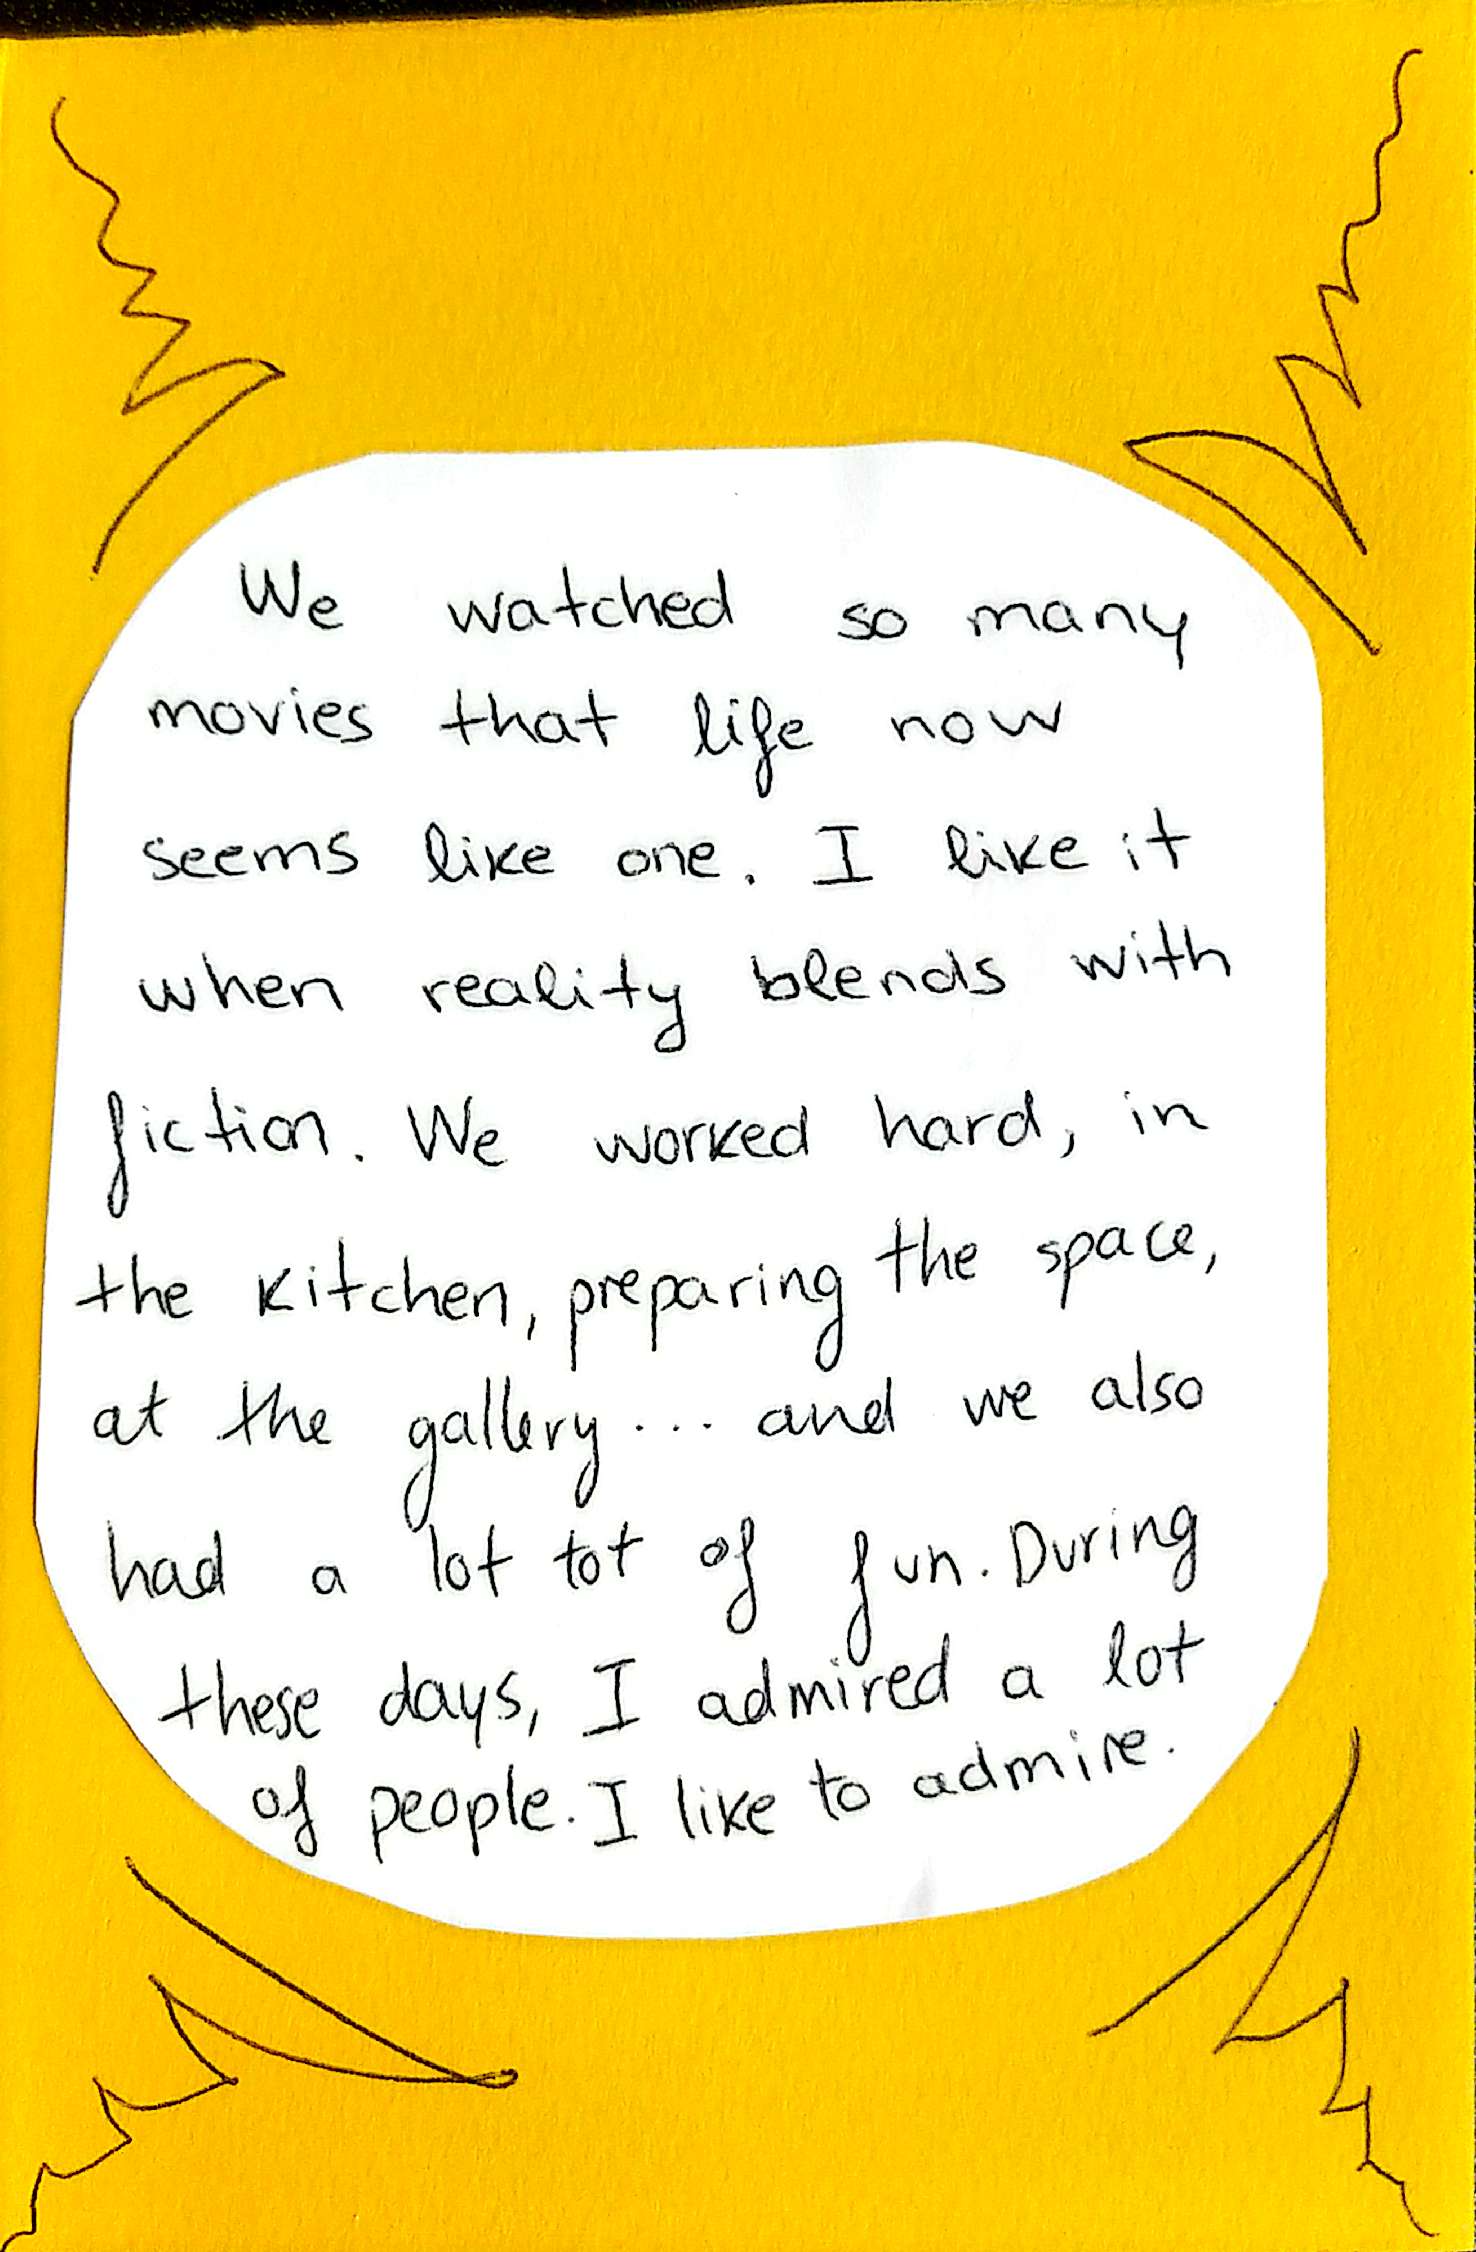 We watched so many
movies that life now
seems like one. I like it
when reality blends with
fiction. We worked hard, in
the kitchen, preparing the space,
at the gallery... and we also
had a lot tot of fun. During
these days, I admired a lot
of people. I like to admire.